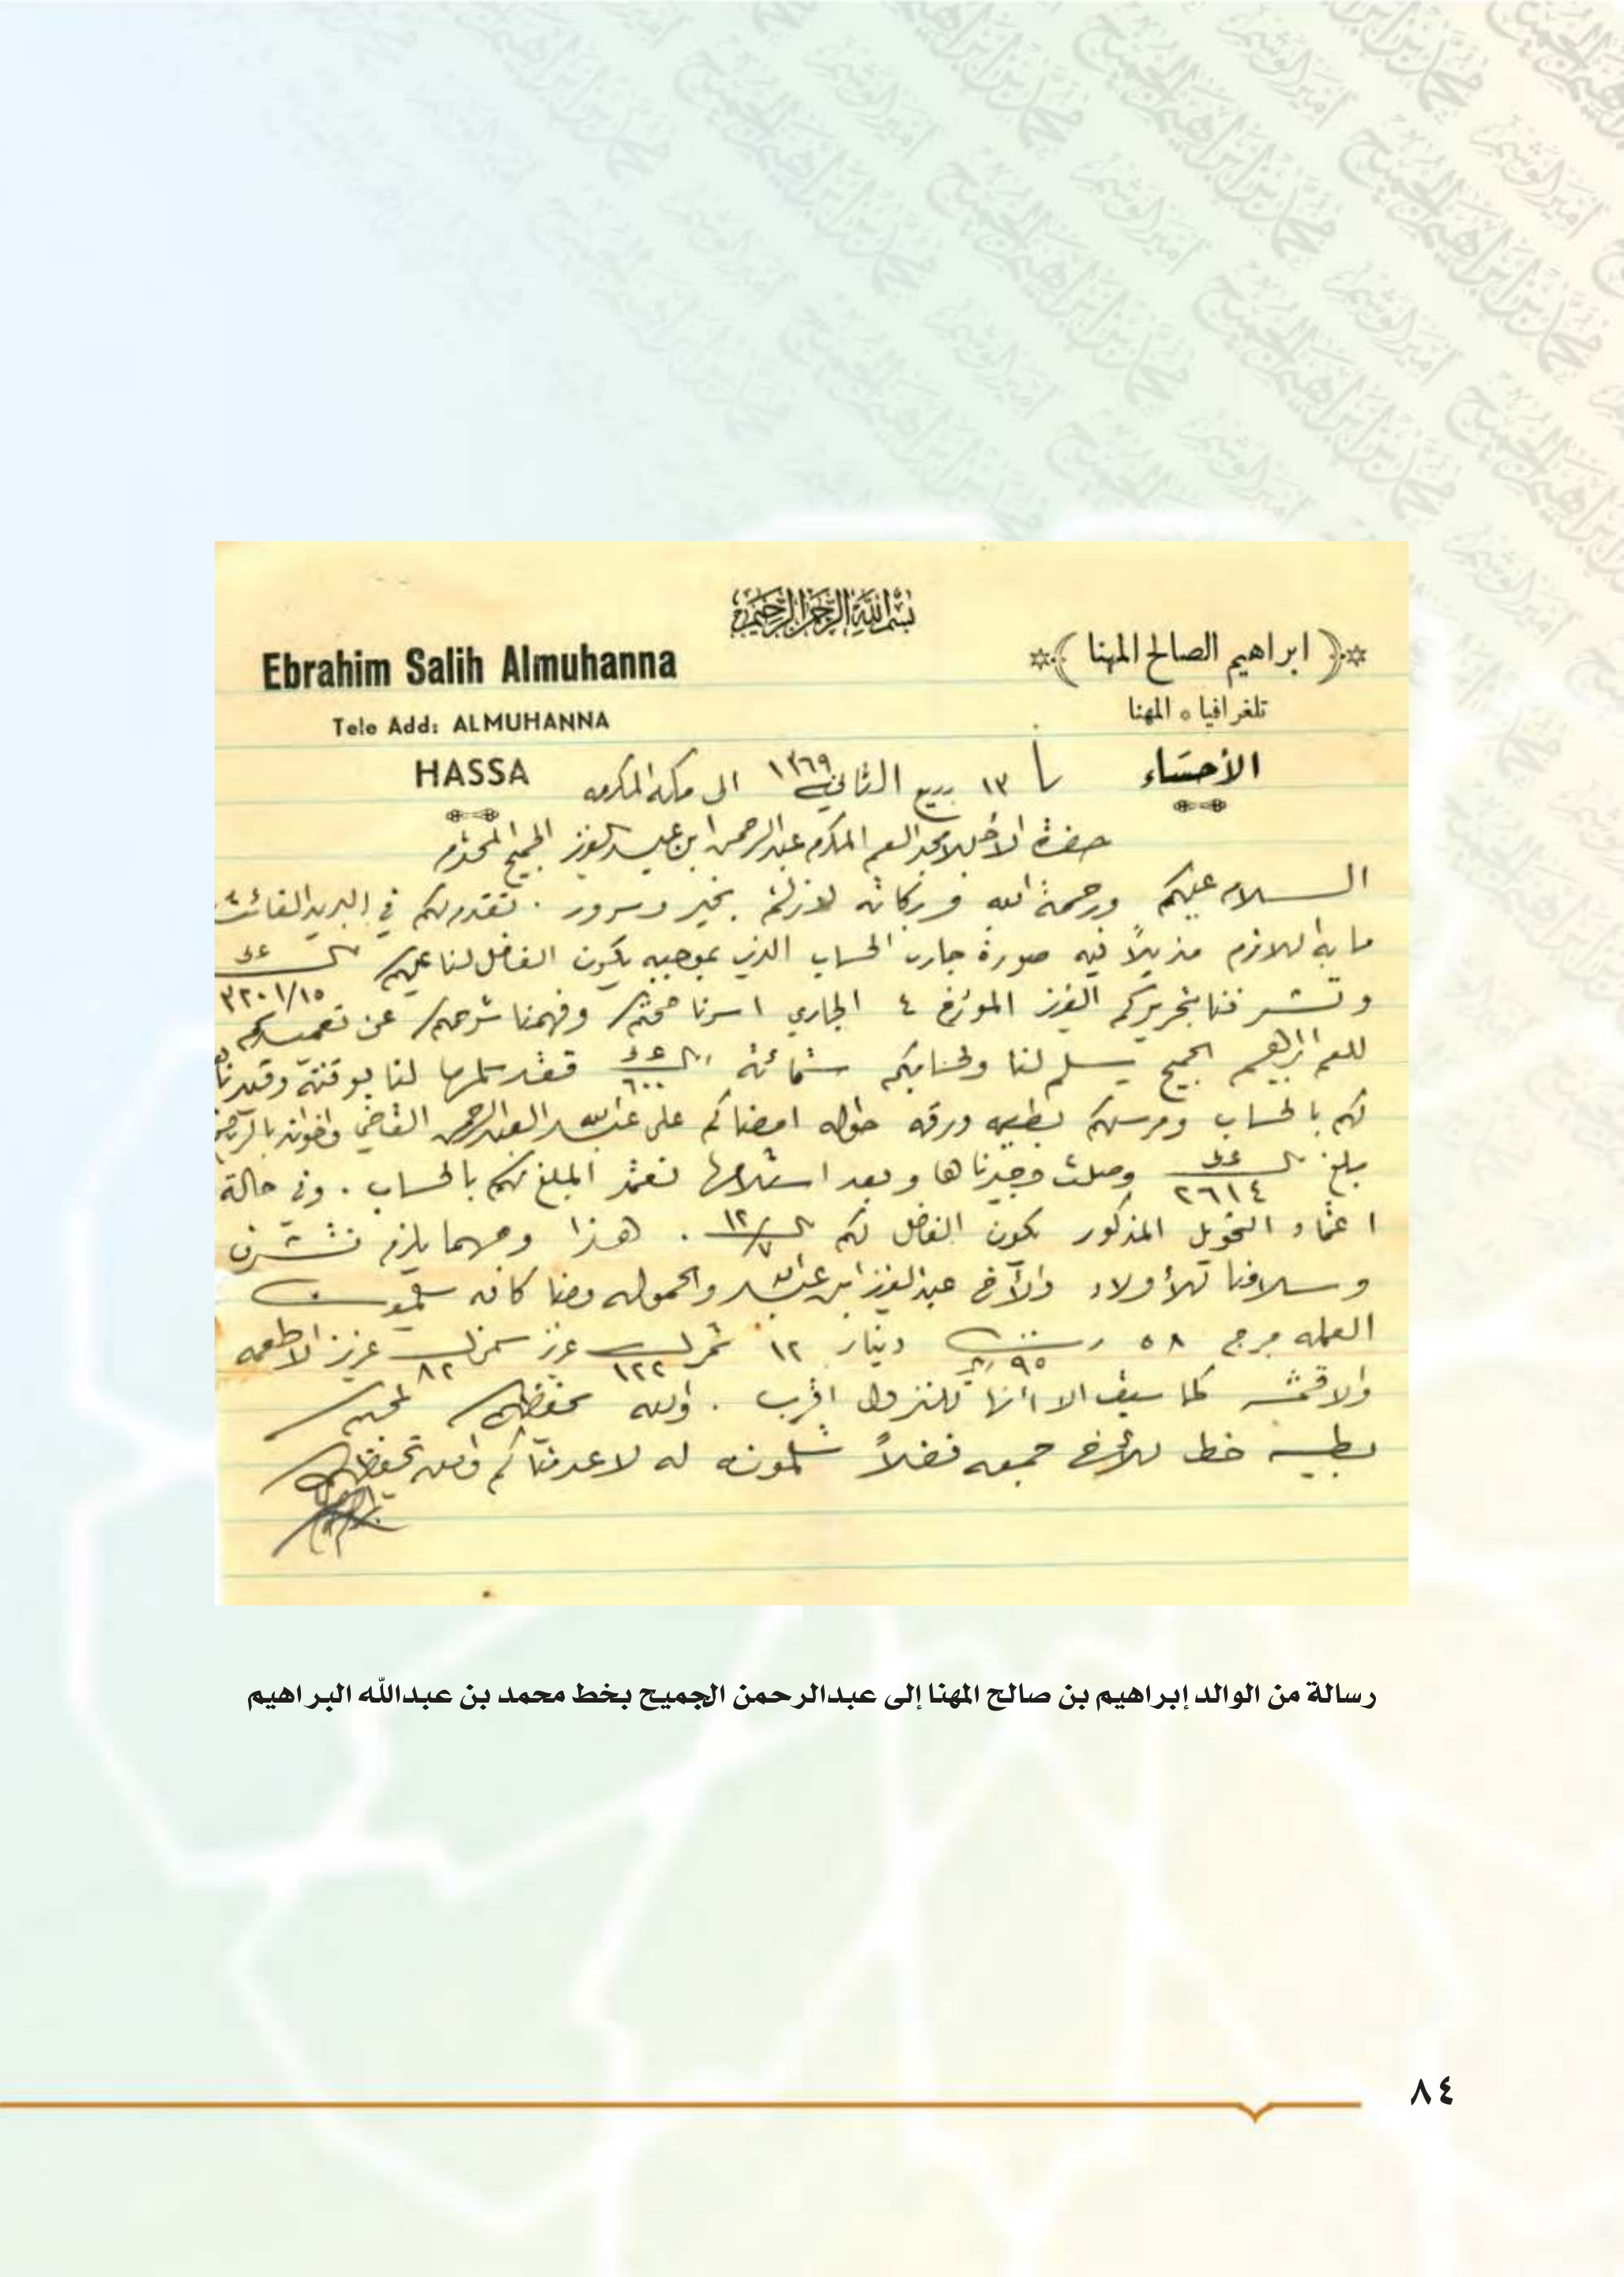 بسم الله الرحمن الرحيم
﴿ ابراهيم الصالح المهنا ﴾
Ebrahim Salih Almuhanna
تلغرافيا ٥ المهنا
Tele Add: ALMUHANNA
الأحساء
١٣ ربيع الثاني ١٣٦٩ الى مكة المكرمه
HASSA
حضرة الأجل الأمجد العم المكرم عبدالرحمن ابن عبدالعزيز الجميح المحترم
السلام عليكم ورحمة الله وبركاته لازلتم بخير وسرور . تقدم لكم في البريد الفائت
ما به اللازم مذيلاً فيه صورة جاري الحساب الذي بموجبه يكون الفاضل لنا عليكم ٣٢٠١/١٥
وتشرفنا بتحريركم العزيز المؤرخ ٤ الجاري اسرنا صحتكم وفهمنا شرحكم عن تعميدكم
للعم ابراهيم الجميح يسلم لنا ولحسابكم ستمائة ٦٠٠ فقد سلمها لنا بوقته وقيدناها
لكم بالحساب ومرسلكم بطيه ورقة حواله امضاكم على عبدالله العبدالرحمن القاضي واخوانه بالرياض
بلغ ٢٦١٤ وصلت وقيدناها وبعد استلامها نعتمد المبلغ لكم بالحساب . وفي حالة
اعتماد التحويل المذكور يكون الفاضل لكم ١٢/٧ . هذا ومهما يلزم نتشرف
وسلامنا للأولاد والأخ عبدالعزيز ابن عبدالله والحموله ومنا كافه يسلمون
العمله مرج ٥٨ ٩٥ دينار ١٢ تمر ١٢٢ عزيز سمن ٨٢ عزيز الاطعمه
والاقمشه كما سبق الا انها للنزول اقرب . والله يحفظكم محبكم
بطيه خط للأخ جمعه فضلاً تسلمونه له لا عدمناكم والله يحفظكم
رسالة من الوالد إبراهيم بن صالح المهنا إلى عبدالرحمن الجميح بخط محمد بن عبدالله البراهيم
٨٤